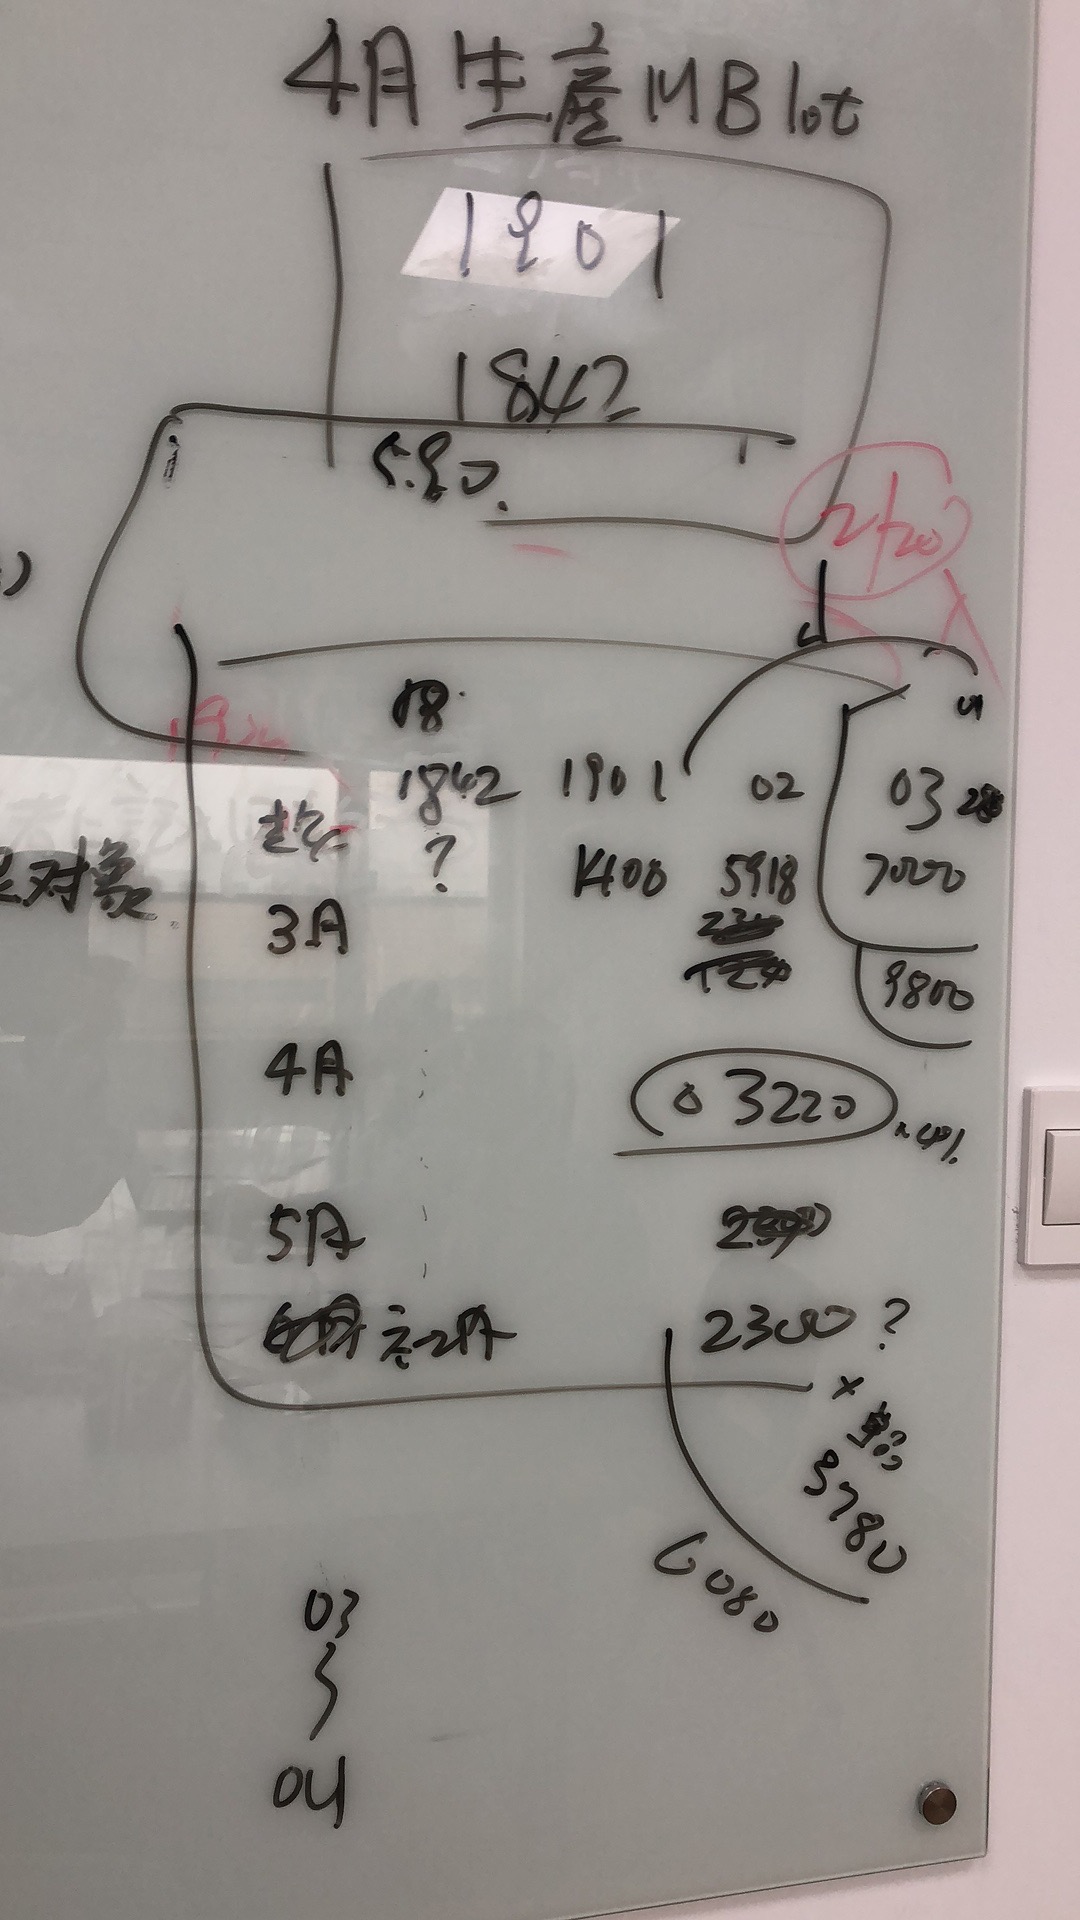 4月 生産 MB lot
1901
1842
5.90.
2/20
18.
1842 1901 02 03
? 1400 5918 7000
对象
3月
9800
4月
03220
5月
2300 ?
×
3780
6080
03
04